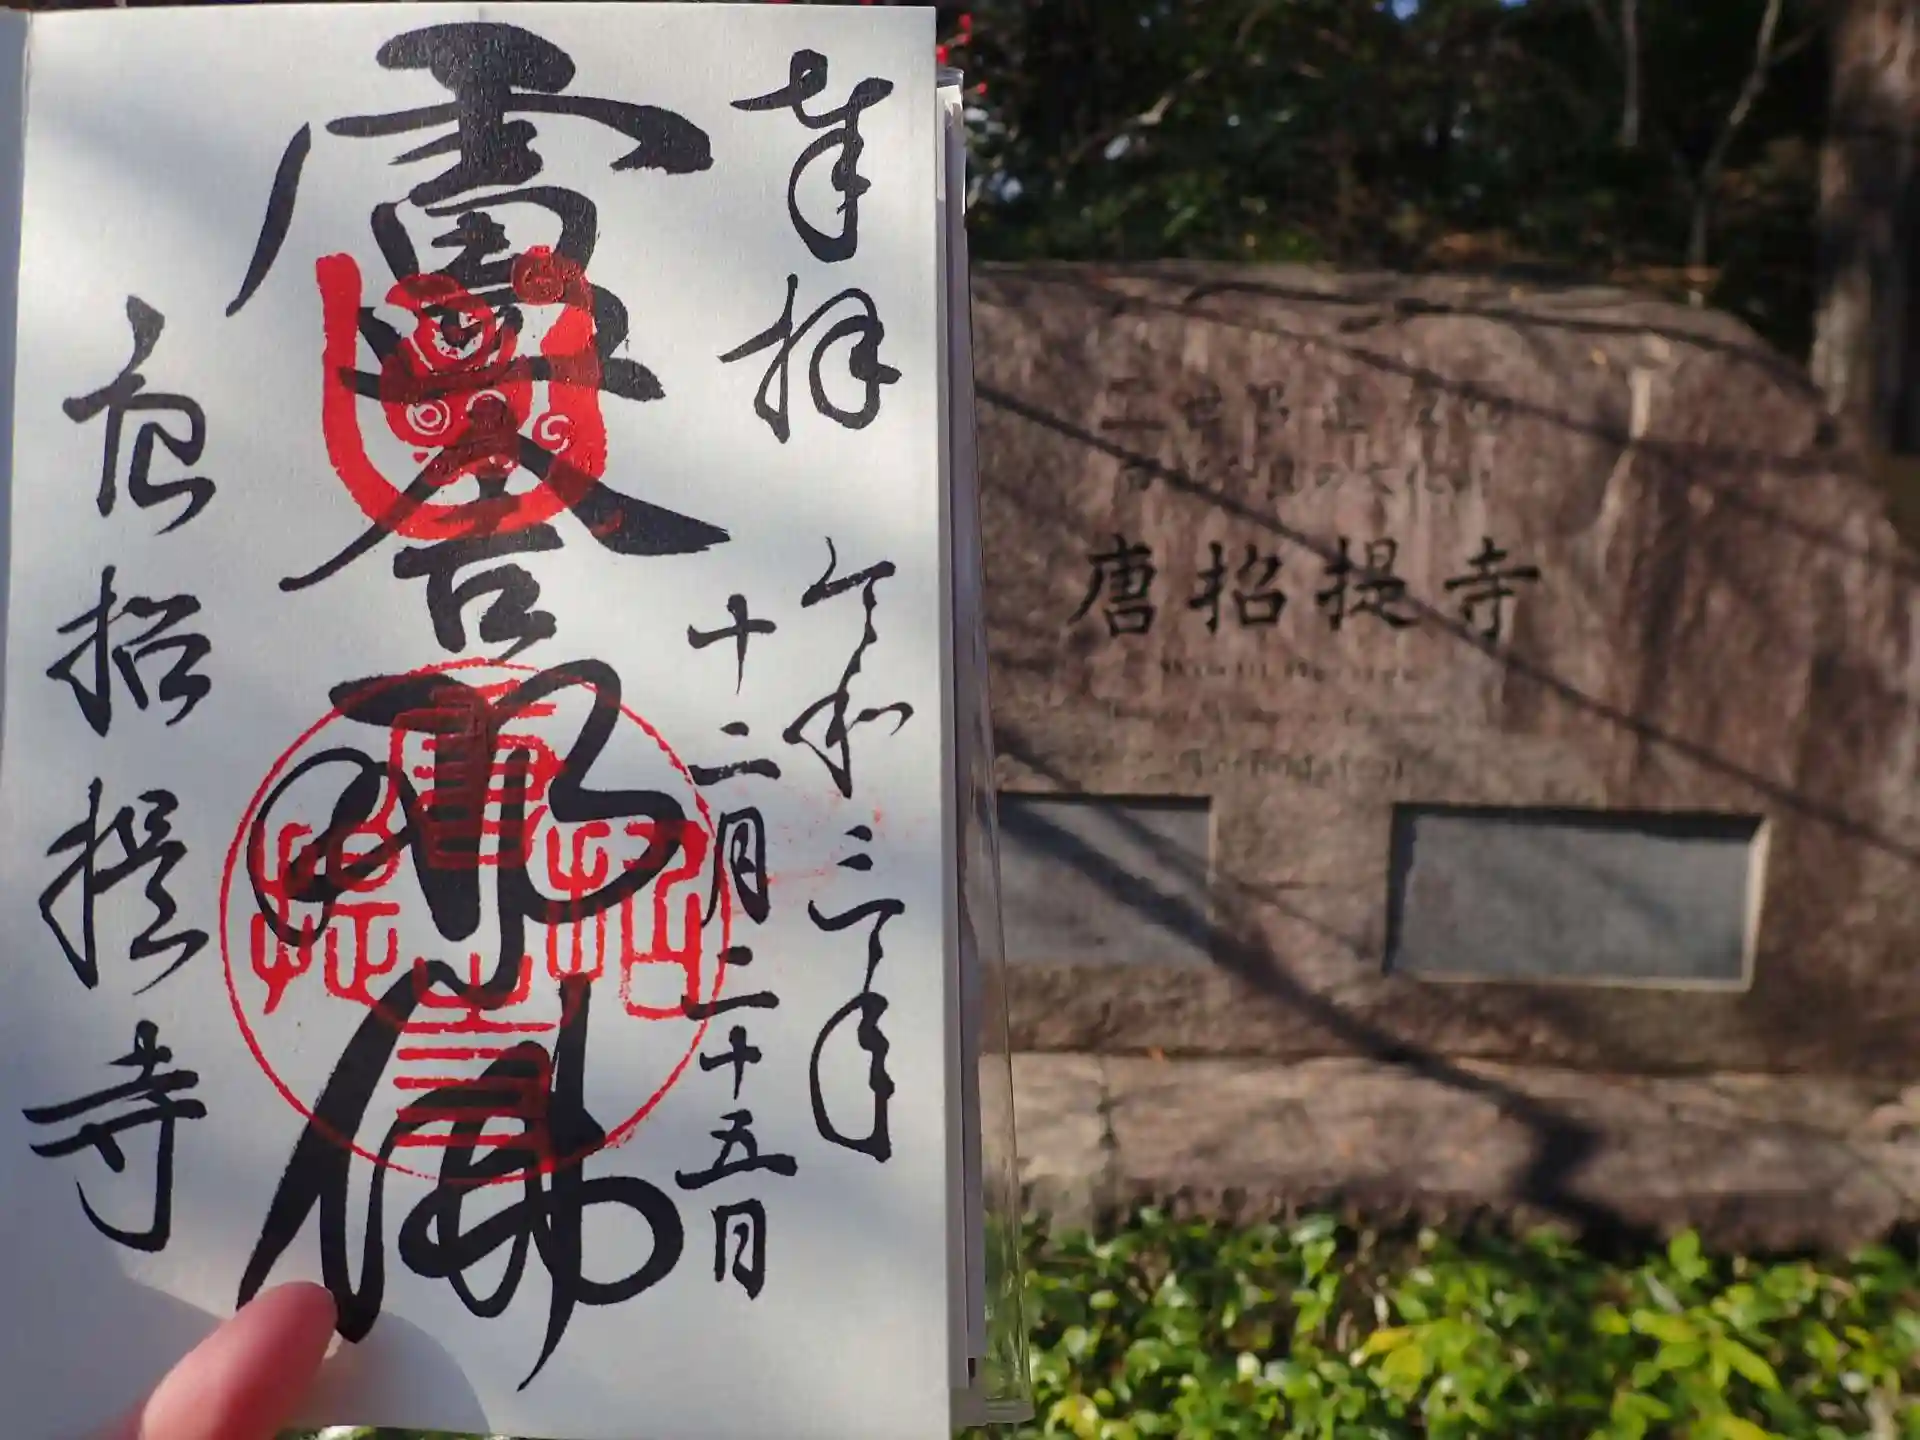 奉拝
令和三年
十二月二十五日
盧舎那佛
唐招提寺
唐招提寺
唐招提寺